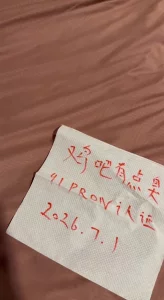 对吧有点臭
91PRON认证
2026.7.1